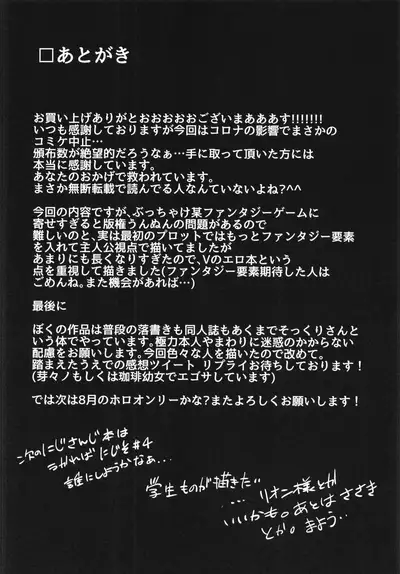 □あとがき
お買い上げありがとおおおおおございまあああす!!!!!!!
いつも感謝しておりますが今回はコロナの影響でまさかの
コミケ中止…
頒布数が絶望的だろうなぁ…手に取って頂いた方には
本当に感謝しています。
あなたのおかげで救われています。
まさか無断転載で読んでる人なんていないよね?^^
今回の内容ですが、ぶっちゃけ某ファンタジーゲームに
寄せすぎると版権うんぬんの問題があるので
難しいのと、実は最初のプロットではもっとファンタジー要素
を入れて主人公視点で描いてましたが
あまりにも長くなりすぎたので、Vのエロ本という
点を重視して描きました(ファンタジー要素期待した人は
ごめんね。また機会があれば…)
最後に
ぼくの作品は普段の落書きも同人誌もあくまでそっくりさんと
いう体でやっています。極力本人やまわりに迷惑のかからない
配慮をお願いします。今回色々な人を描いたので改めて。
踏まえたうえでの感想ツイート リプライお待ちしております!
(芽々ノもしくは珈琲幼女でエゴサしています)
では次は8月のホロオンリーかな?またよろしくお願いします!
次のにじさんじ本は
うかればにじそ#4
誰にしようかなぁ…
学生ものが描きたい
…リオン様とか
いいかも。あとは ささき
とか。まよう..